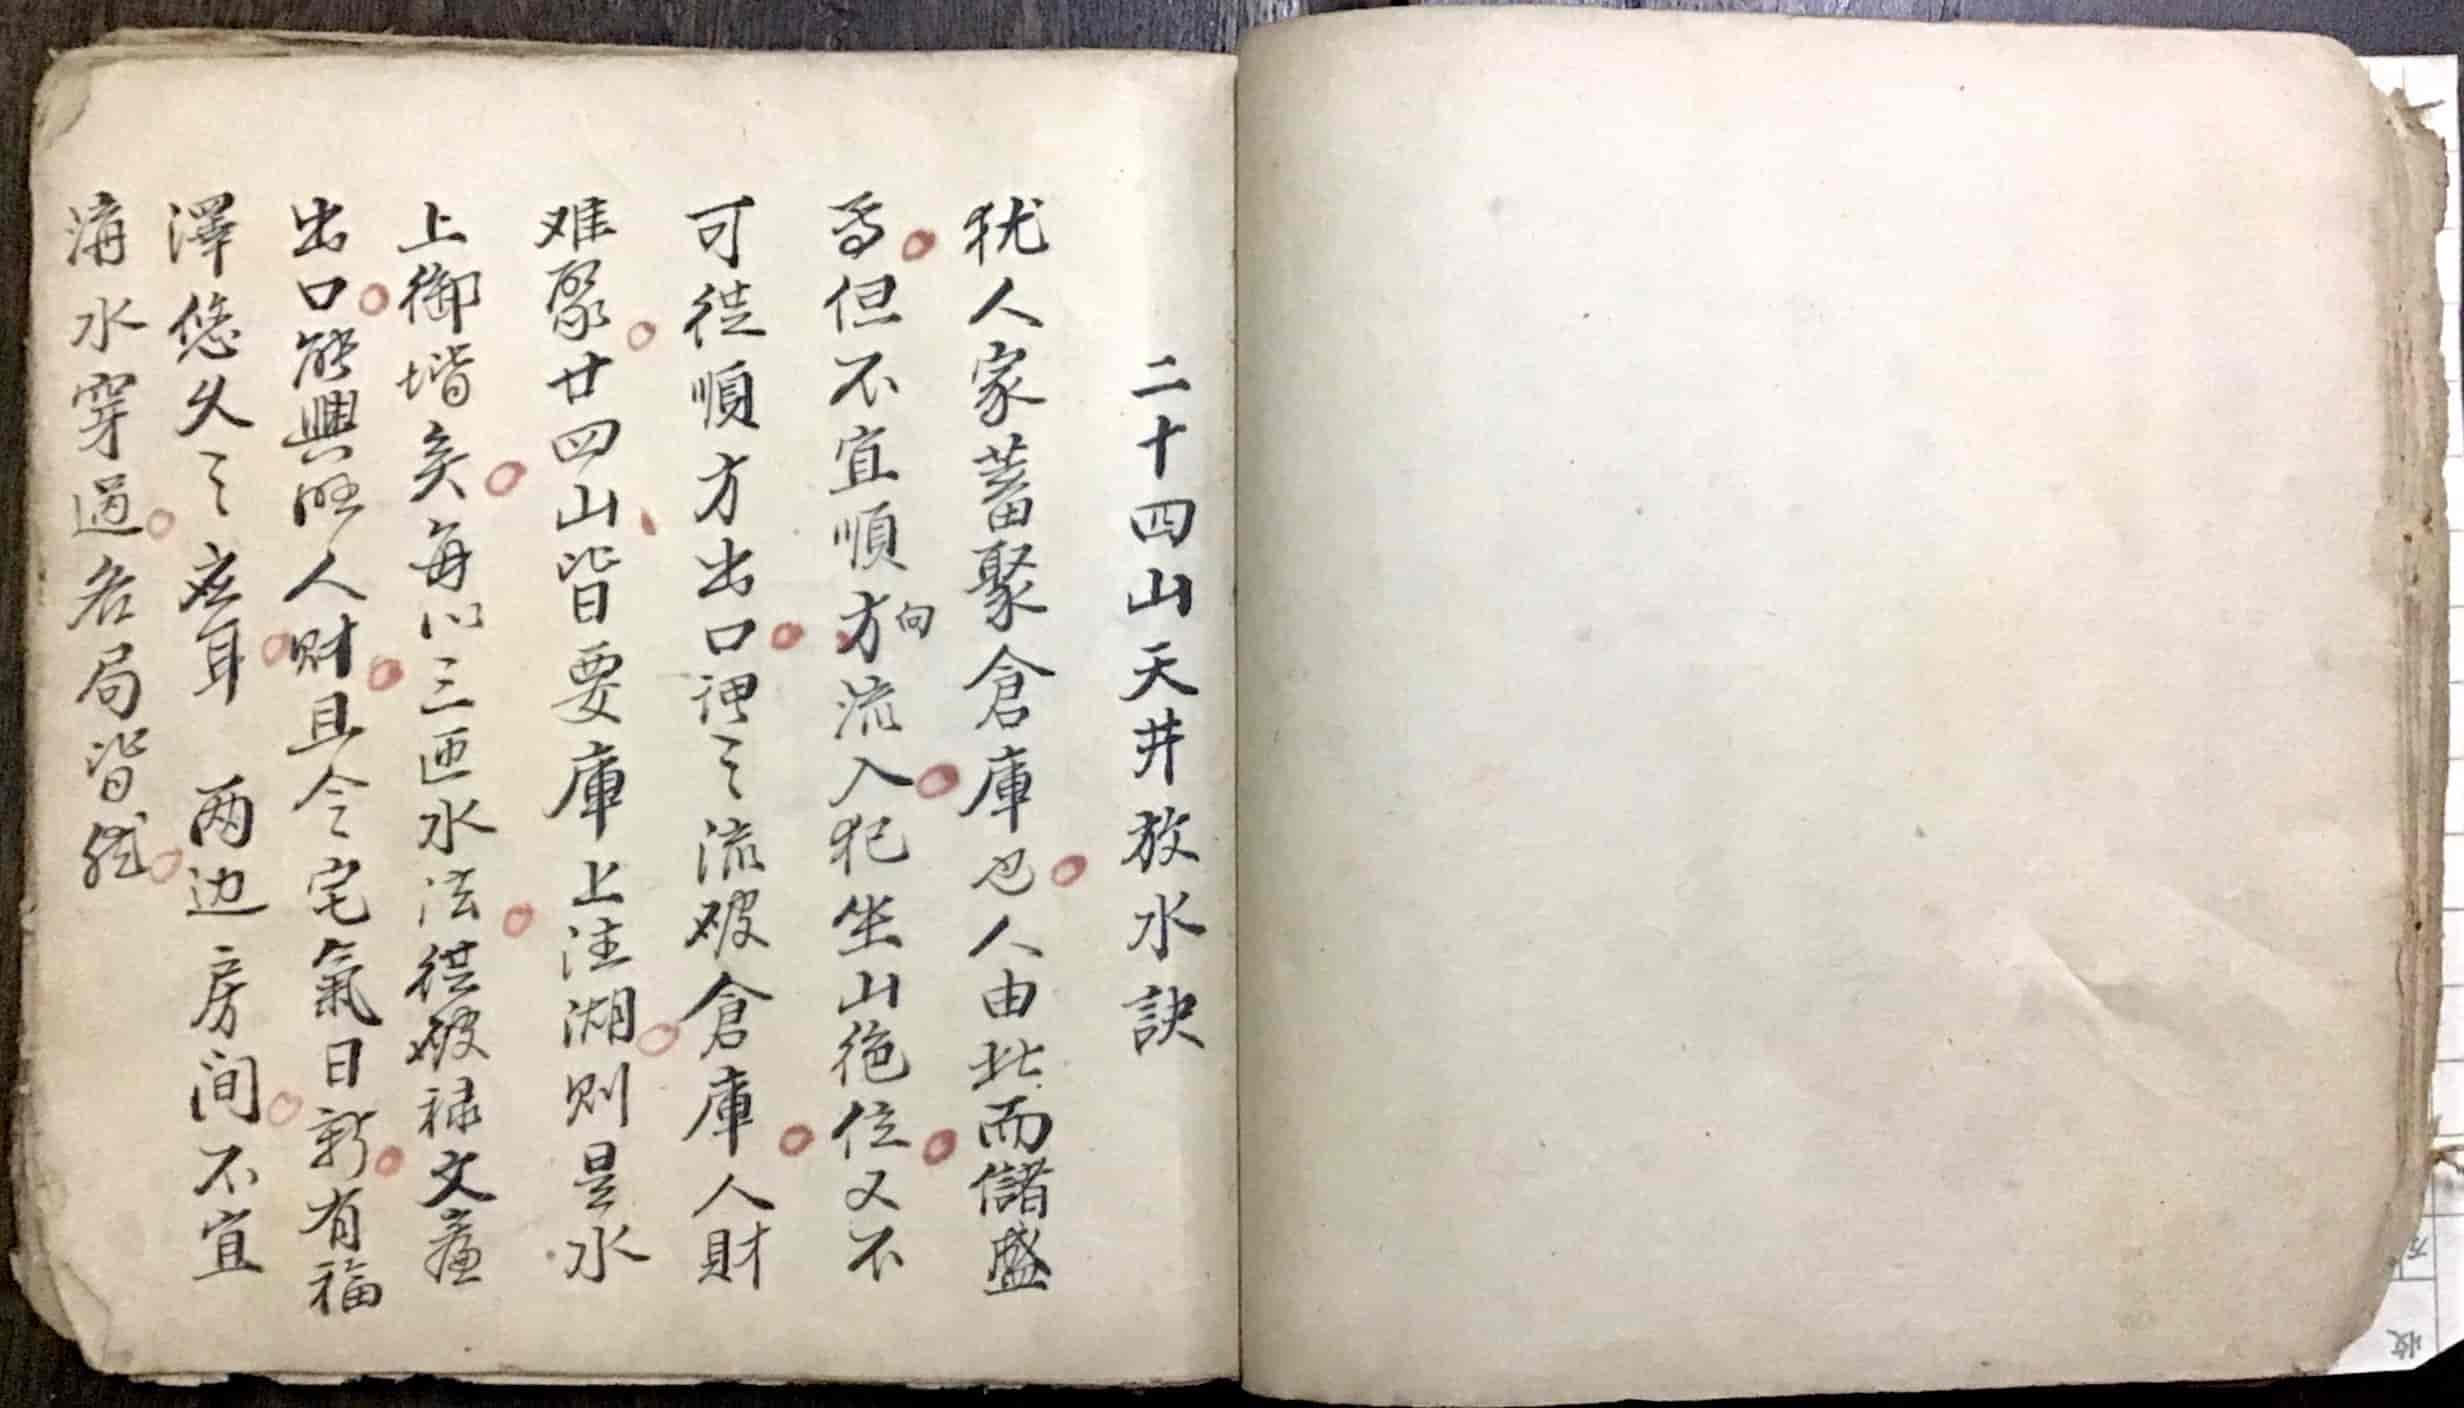 二十四山天井放水訣
犹人家蓄聚倉庫也人由此而儲盛
焉但不宜順方向流入犯坐山絶位又不
可從順方出口謂之流破倉庫人財
难聚廿四山皆要庫上注湖則是水
上御堦矣每以三匝水法從破祿文廉
出口能興旺人財且令宅氣日新有福
澤悠久之应耳 两边房间不宜
溝水穿過各局皆然